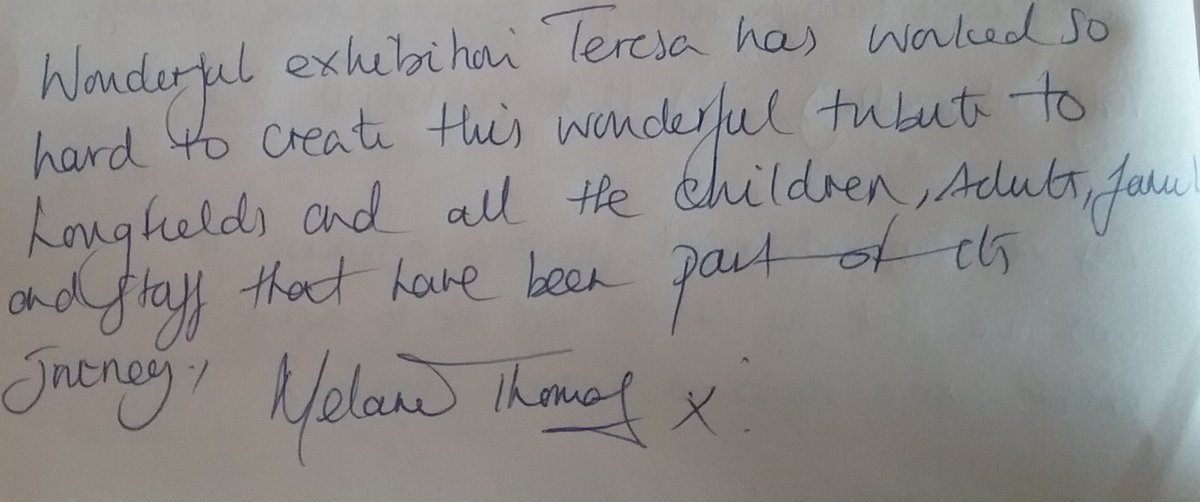 Wonderful exhibition Teresa has worked so
hard to create this wonderful tribute to
Longfields and all the children, Adults, famil
and staff that have been part of its
journey! Melanie Thomas x